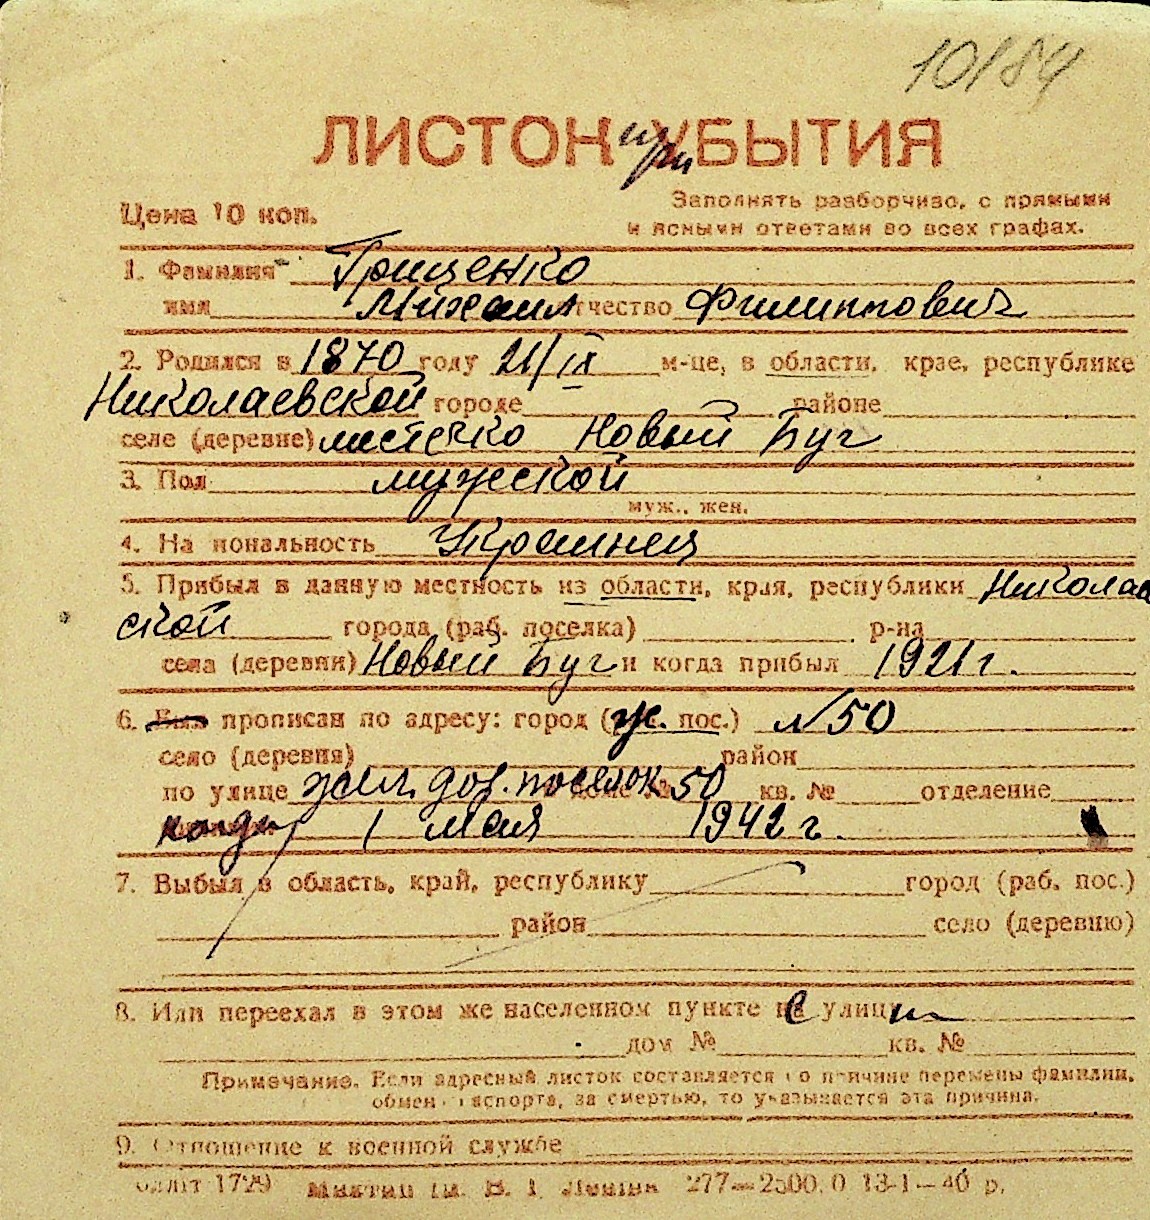 10184
ЛИСТОК при УБЫТИЯ
Цена 10 коп.
Заполнять разборчиво, с прямыми
и ясными ответами во всех графах.
1. Фамилия Грищенко
имя Михаил отчество Филиппович
2. Родился в 1870 году 21/IX м-це, в области, крае, республике
Николаевской городе районе
селе (деревне) местечко Новый Буг
3. Пол мужской
муж., жен.
4. Национальность Украинец
5. Прибыл в данную местность из области, края, республики Николаев
ской города (раб. поселка) р-на
села (деревни) Новый Буг и когда прибыл 1921 г.
6. Был прописан по адресу: город ( пос.) №50
село (деревня) район
по улице жил. поселок 50 кв. № отделение
когда 1 мая 1942 г.
7. Выбыл в область, край, республику город (раб. пос.)
район село (деревню)
8. Или переехал в этом же населенном пункте с улицы
дом № кв. №
Примечание. Если адресный листок составляется по причине перемены фамилии,
обмен паспорта, за смертью, то указывается эта причина.
9. Отношение к военной службе
1729 В. І. Леніна 277—2500.0 13-1—40 р.